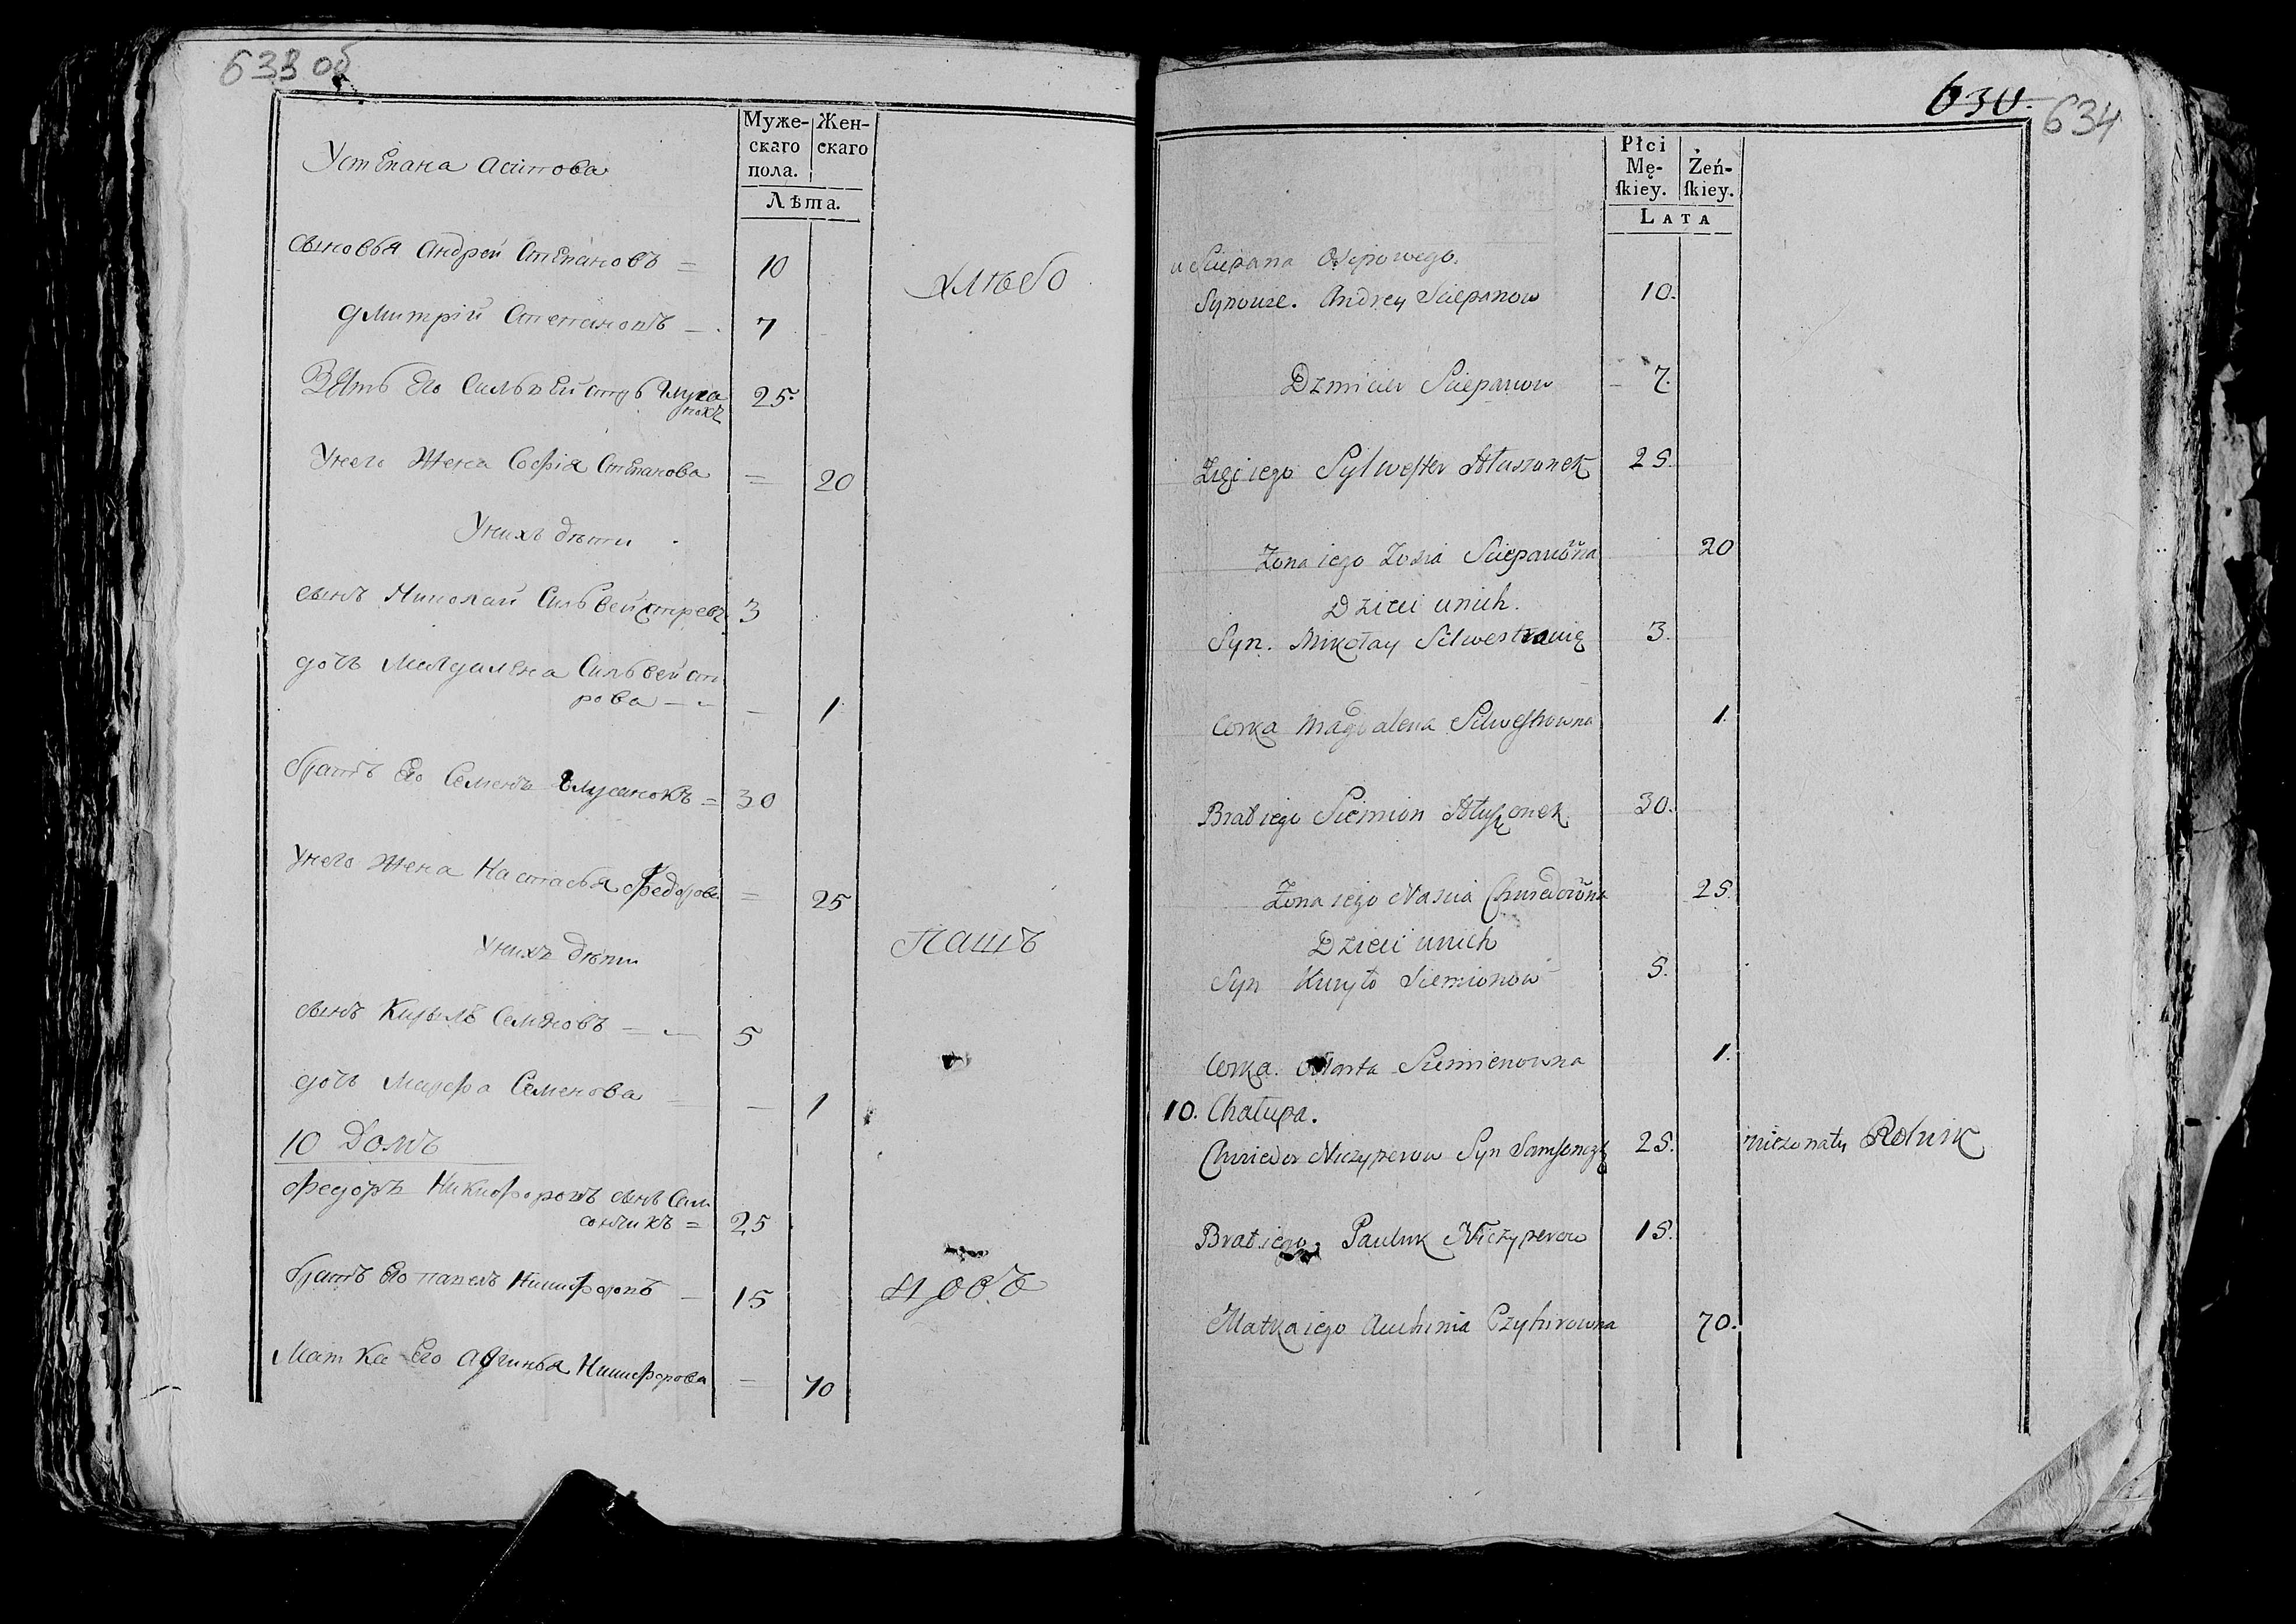 633 об
Муже-
скаго
пола.
Жен-
скаго
Лѣта.
У Степана Асипова
сыновья Андрей Степановъ = 10
Дмитрій Степановъ — 7
Зять Его Сильвейстръ Глуса
нокъ 25.
У него Жена Софія Степанова = 20
У нихъ дѣти
сынъ Николай Сильвейстровъ 3
дочь Магдалена Сильвейст
рова — 1
братъ Его Семенъ Глусанокъ = 30
У него Жена Настасья Федорова = 25
У нихъ дѣти
сынъ Кирылъ Семеновъ = 5
дочь Марфа Семенова — 1
10 Домъ
Федоръ Никифоровъ сынъ Сам
сончикъ = 25
братъ Его Павелъ Никифоровъ — 15
Матка Его Авгинья Никифорова = 70
хлѣбо
пашъ
630. 634
Płci
Mę-
ſkiey.
Żeń-
ſkiey.
LATA
u Sciepana Osipowego.
Synowie. Andrey Sciepanow 10.
Dzmicier Sciepanow – 7.
Zięć iego Sylwester Hłusonek 25.
Żona iego Zosia Sciepanowna 20
Dzieci u nich.
Syn. Mikołay Silwestrowię 3.
Corka Magdalena Silwestrowna 1.
Brat iego Siemion Hłusonek 30.
Żona iego Nascia Chwiedorowna 25.
Dzieci u nich
Syn Kuryło Siemionow 5.
Corka. Marta Siemienowna 1.
10. Chałupa.
Chwiedor Niczyperow Syn Samsonczyk 25. nieżonaty Rolnik
Brat iego Pauluk Niczyperow 15.
Matka iego Auhinia 70.